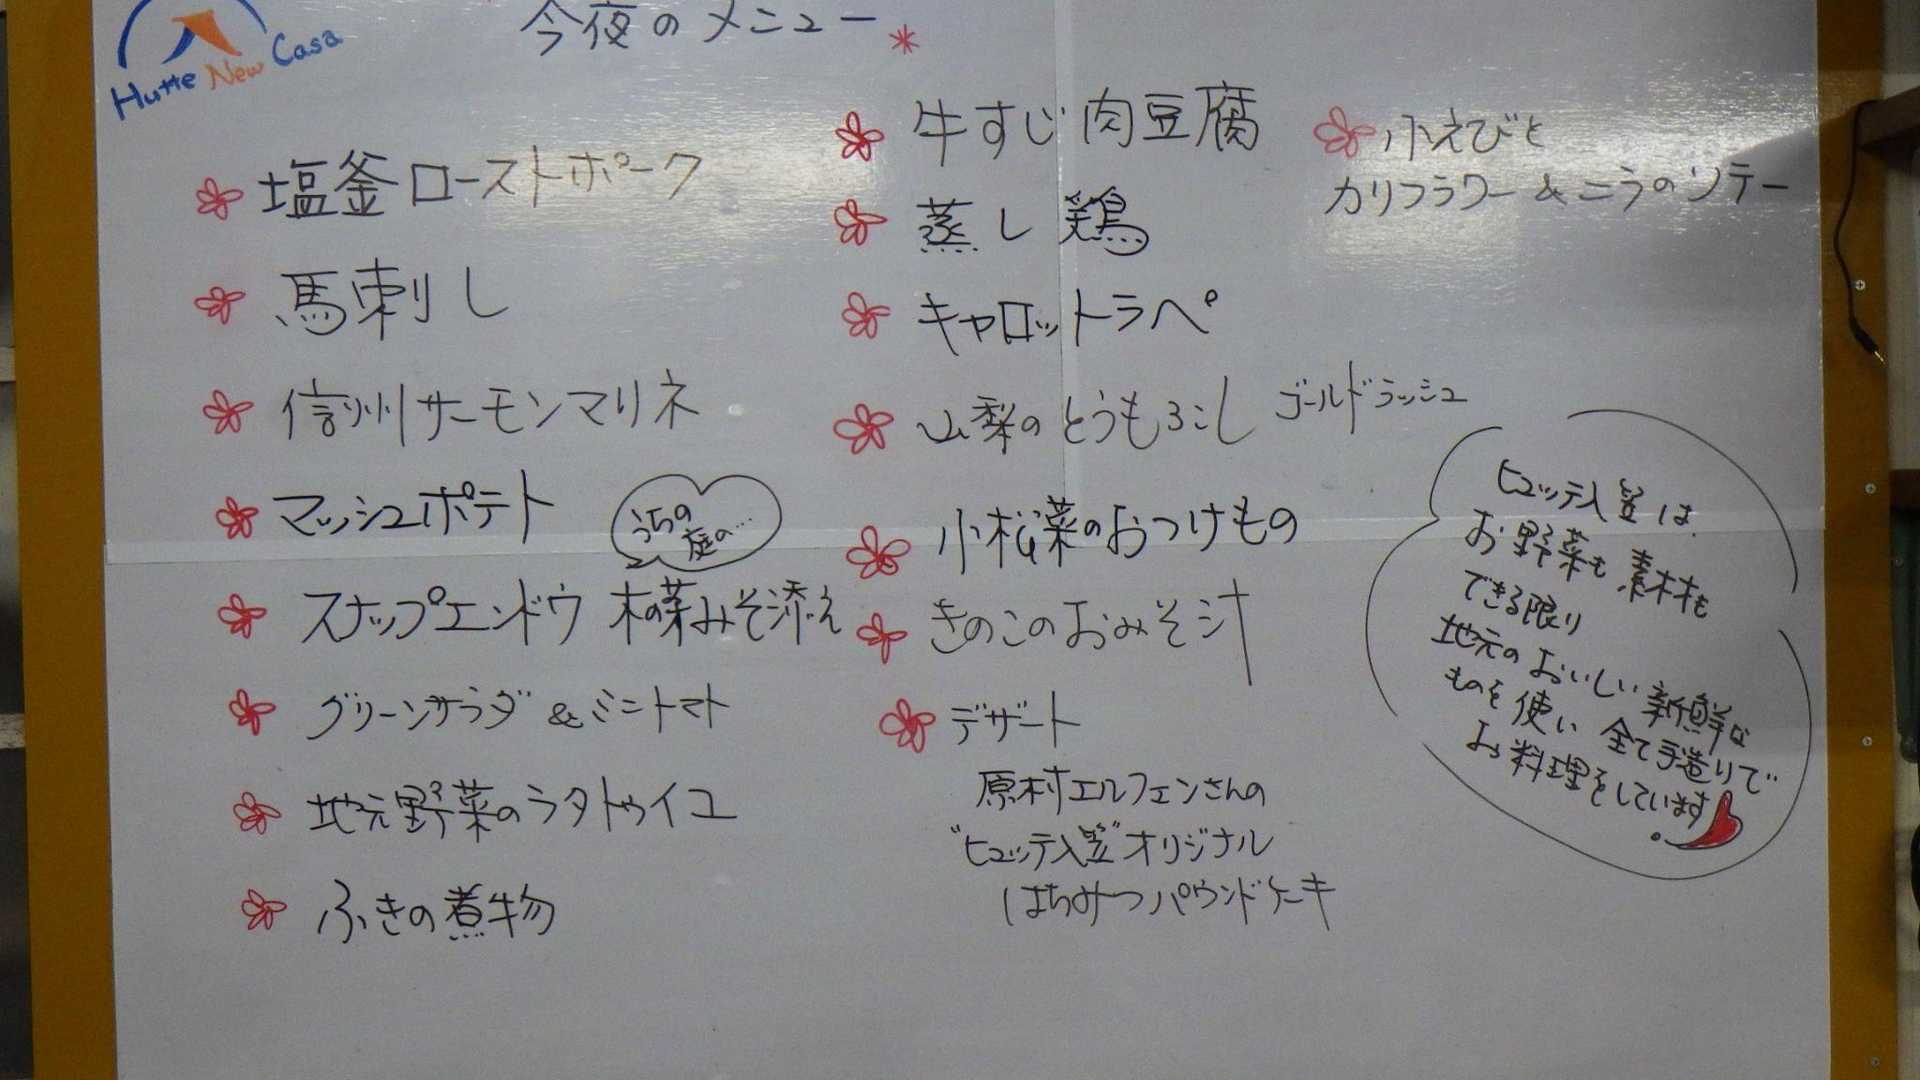 Hutte New Casa
今夜のメニュー
塩釜ローストポーク
馬刺し
信州サーモンマリネ
マッシュポテト
うちの
庭の…
スナップエンドウ 木の芽みそ添え
グリーンサラダ&ミニトマト
地元野菜のラタトゥイユ
ふきの煮物
牛すじ肉豆腐
蒸し鶏
キャロットラペ
山梨のとうもろこし ゴールドラッシュ
小松菜のおつけもの
きのこのおみそ汁
デザート
原村エルフェンさんの
"ヒュッテ入笠"オリジナル
はちみつパウンドケーキ
小えびと
カリフラワー&ニラのソテー
ヒュッテ入笠は
お野菜も素材も
できる限り
地元のおいしい新鮮な
ものを使い全て手造りで
お料理をしています。